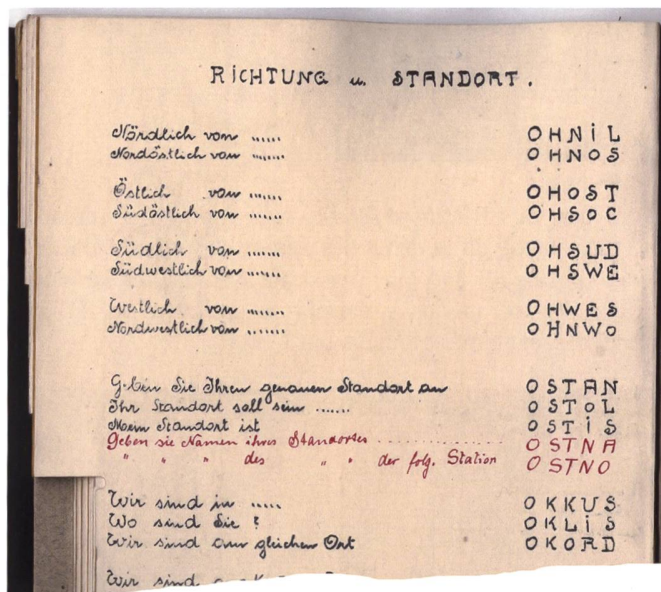 RICHTUNG u. STANDORT.
Nördlich von ...... OHNIL
Nordöstlich von ....... OHNOS
Östlich von ...... OHOST
Südöstlich von ...... OHSOC
Südlich von ...... OHSUD
Südwestlich von ...... OHSWE
Westlich von ...... OHWES
Nordwestlich von ....... OHNWO
Geben Sie Ihren genauen Standort an OSTAN
Ihr Standort soll sein ....... OSTOL
Mein Standort ist OSTIS
Geben sie Namen ihres Standortes .................. OSTNA
" " " des " " der folg. Station OSTNO
Wir sind in ..... OKKUS
Wo sind Sie ? OKLIS
Wir sind am gleichen Ort OKORD
Wir sind